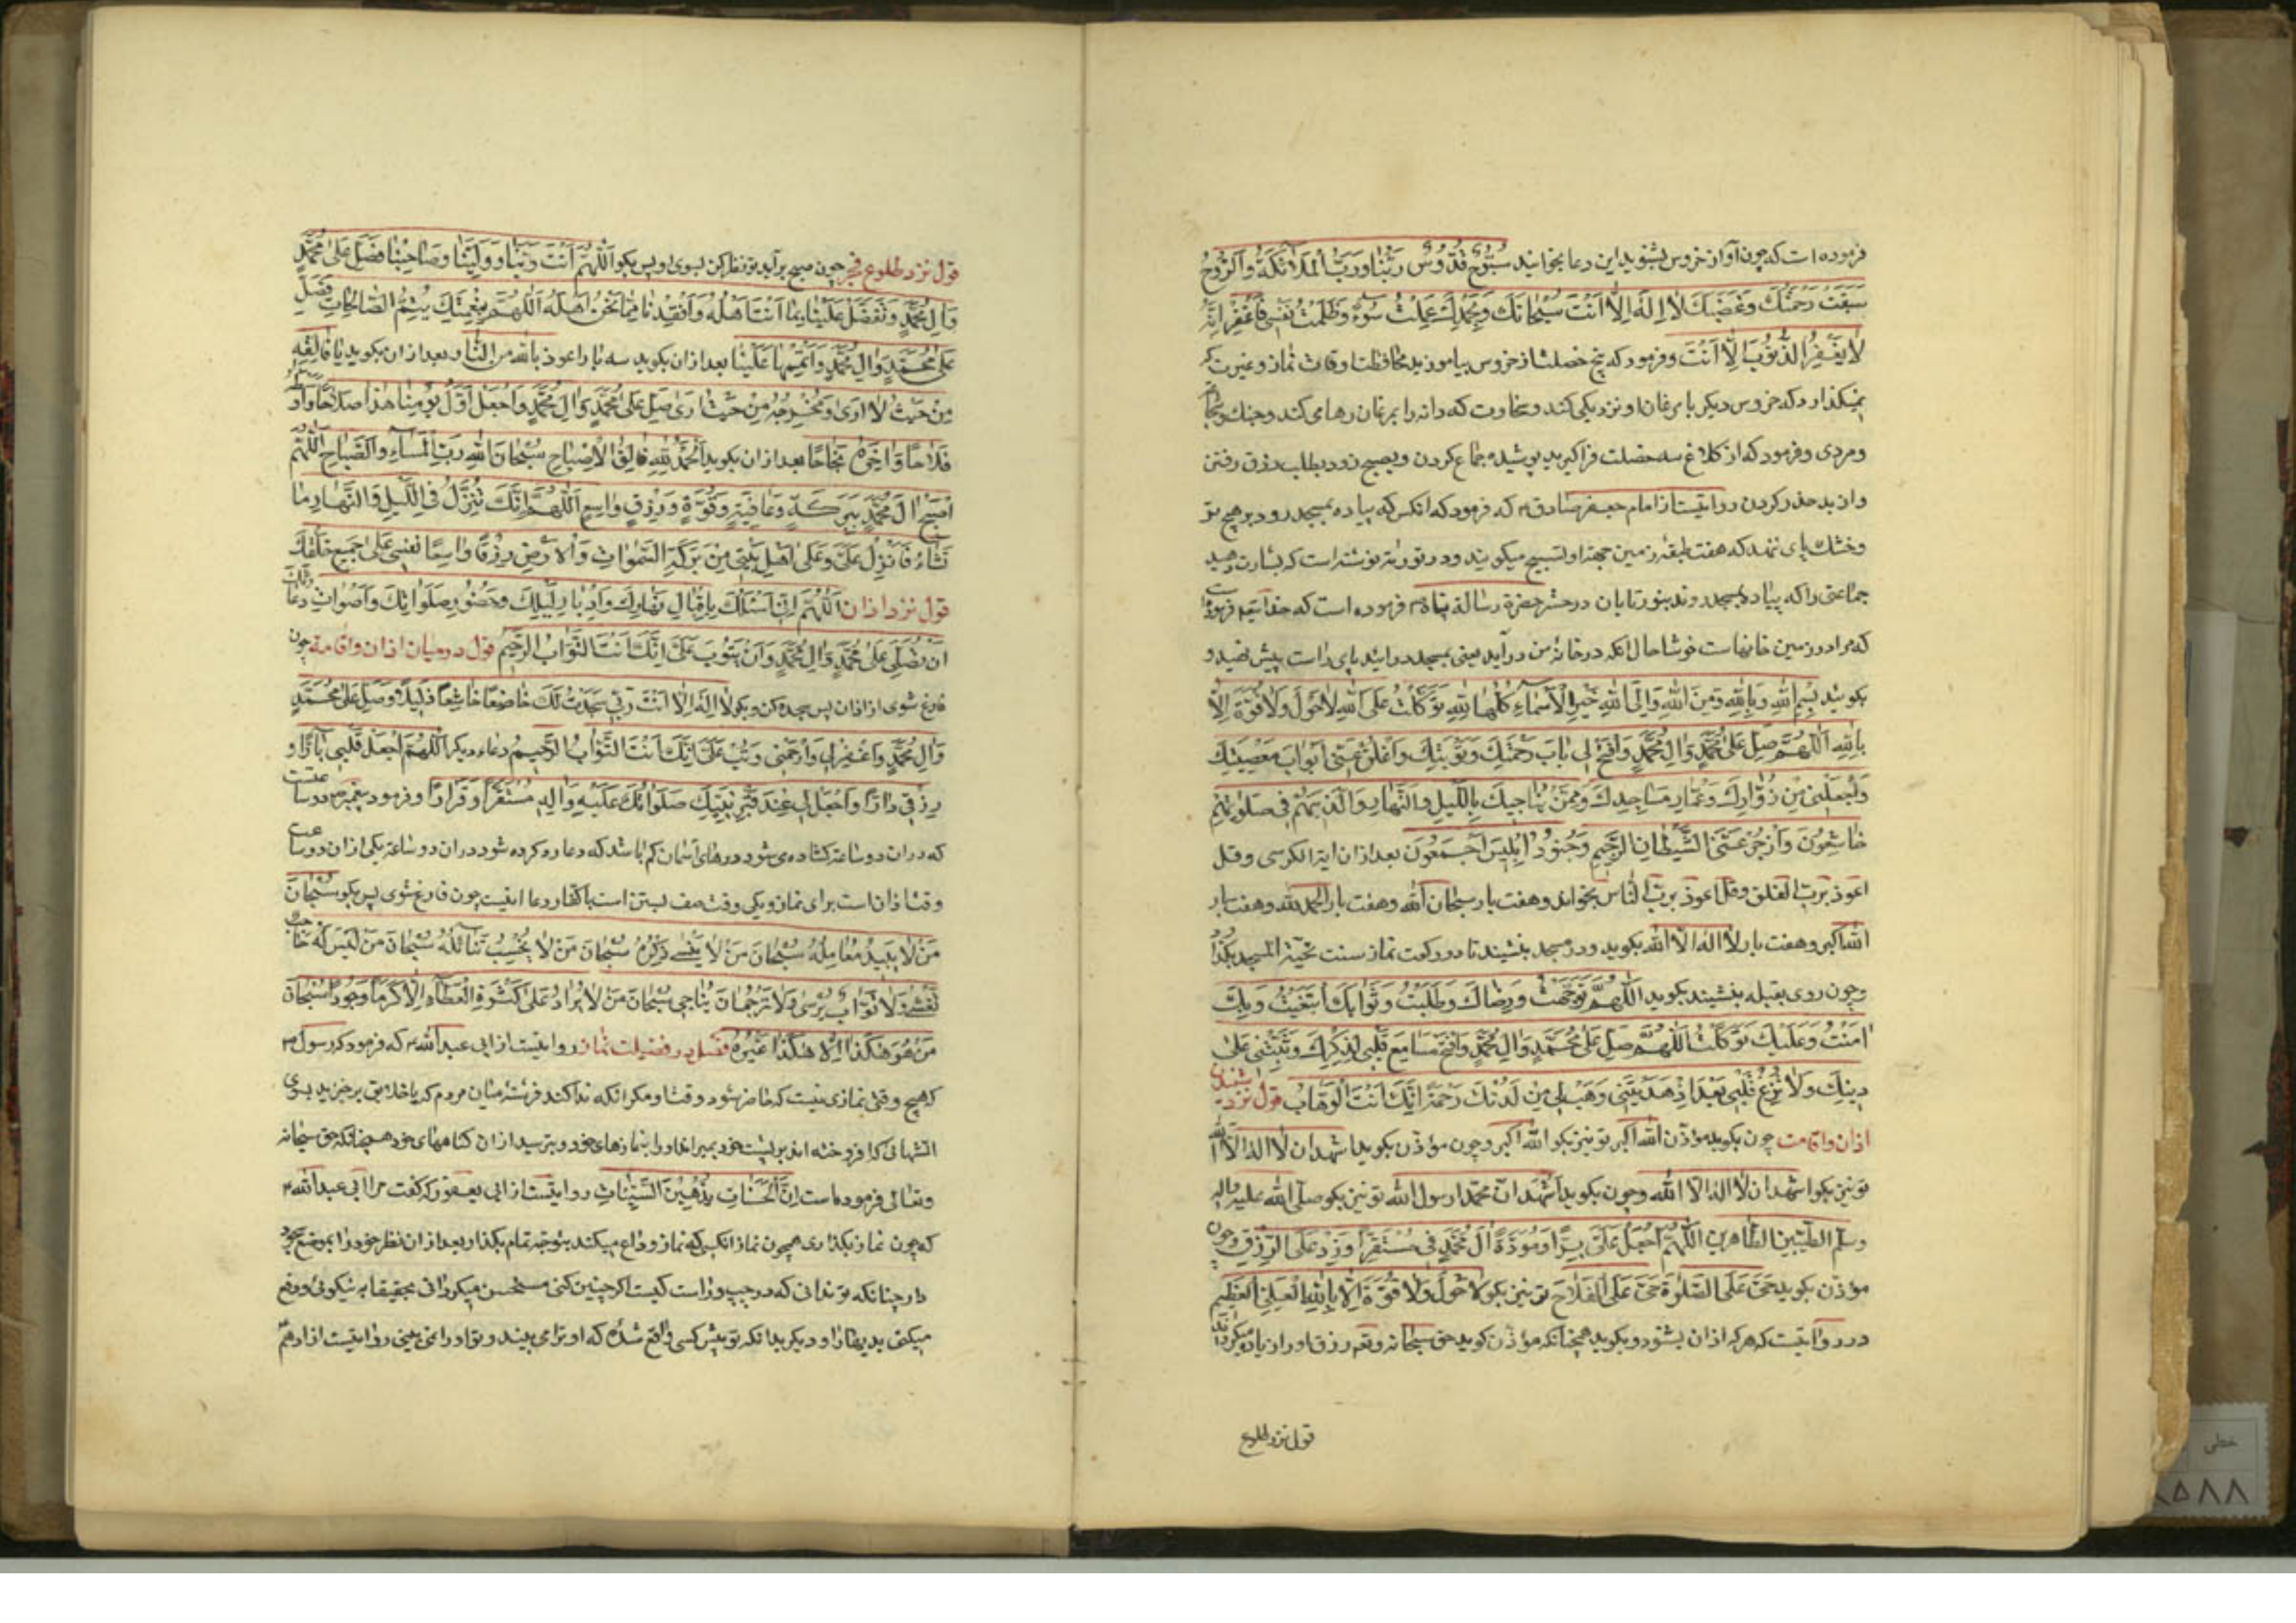 فرموده است که چون آواز خروس بشنوید این دعا بخوانید سُبُّوحٌ قُدُّوسٌ رَبُّنا وَرَبُّ الْمَلائِكَةُ وَالرُّوحُ
سَبَقَتْ رَحْمَتُكَ وَغَضَبَكَ لا اِلهَ اِلّا اَنْتَ سُبْحانَكَ وَبِحَمْدِكَ عَمِلْتُ سُوءً وَظَلَمْتُ نَفْسی فَاغْفِرْ اِنَّهُ
لا يَغْفِرُ الذُّنُوبَ اِلّا اَنْتَ وفرمود که پنج خصلت از خروس بیاموزید محافظت اوقات نماز وغیرت که
نمیکذارد که خروس دیکر با مرغان او نزدیکی کند وسخاوت که دانه را بمرغان رها می کند وجنک وشجاع
ومردی وفرمود که از کلاغ سه خصلت فراکیرید پوشیده جماع کردن وبصبح زود بطلب رزق رفتن
واز بد حذر کردن روایتست از امام جعفر صادق ع که فرمود که انکس که پیاده بمسجد رود بر هیچ تر
وخشک پای ننهد که هفت طبقهٔ زمین جهة او تسبیح میکویند ودر توریة نوشته است که بشارت دهید
جماعتی را که پیاده بمسجد روند بنور تابان در حشر حضرة رسالة پناه ص فرموده است که خدایتع فرموده
که مرا در زمین خانهاست خوشا حال انکه در خانهٔ من در آید یعنی بمسجد درایند پای راست پیش نهید و
بکویید بِسْمِ اللهِ وَبِاللهِ وَمِنَ اللهِ وَاِلَی اللهِ خَیْرِ الْاَسْماءِ کُلُّها لِلّهِ تَوَکَّلْتُ عَلَی اللهِ لاحَوْلَ وَلا قُوَّةَ اِلّا
بِاللهِ اَللّهُمَّ صَلِّ عَلی مُحَمَّدٍ وَالِ مُحَمَّدٍ وَافْتَحْ لی بابَ رَحْمَتِكَ وَتَوْبَتِكَ وَاَغْلِقْ عَنّی اَبْوابَ مَعْصِیَتِكَ
وَاجْعَلْنی مِنْ زُوّارِكَ وَعُمّارِ مَساجِدِكَ وَمِمَّنْ یُناجیكَ بِاللَّیْلِ وَالنَّهارِ وَالَّذینَ هُمْ فی صَلوتِهِمْ
خاشِعُونَ وَازْجُرْ عَنّی الشَّیْطانِ الرَّجیمِ وَجُنُودُ اِبْلیسَ اَجْمَعُونَ بعد از ان ایة الکرسی وقل
اعوذ برب الفلق وقل اعوذ برب الناس بخواند وهفت بار سبحان الله وهفت بار الحمد لله وهفت بار
الله اکبر وهفت بار لا اله الا الله بکوید ودر مسجد ننشیند تا دو رکعت نماز سنت تحیة المسجد بکذارد
وچون روی بقبله بنشیند بکوید اَللّهُمَّ تَوَجَّهْتُ وَرِضاكَ وَطَلَبْتُ وَثَوابَكَ اَبْتَغَیْتُ وَبِكَ
امَنْتُ وَعَلَیْكَ تَوَکَّلْتُ اَللّهُمَّ صَلِّ عَلی مُحَمَّدٍ وَالِ مُحَمَّدٍ وَافْتَحْ مَسامِعَ قَلْبی لِذِکْرِكَ وَثَبِّتْنی عَلی
دینِكَ وَلا تُزِغْ قَلْبی بَعْدَ اِذْ هَدَیْتَنی وَهَبْ لی مِنْ لَدُنْكَ رَحْمَةً اِنَّكَ اَنْتَ الْوَهّابُ قول نزد شنیدن
اذان واقامت چون بکوید مؤذن الله اکبر تو نیز بکو الله اکبر وچون مؤذن بکوید اشهد ان لا اله الا الله
تو نیز بکو اشهد ان لا اله الا الله وچون بکوید اشهد ان محمدا رسول الله تو نیز بکو صلی الله علیه واله
وسلم الطیبین الطاهرین اَللّهُمَّ اجْعَلْ عَلَیَّ بِرّاً وَمُوَدَّةُ الَ مُحَمَّدٍ فی مُسْتَقَرّاً وَزِدْ عَلَی الرِّزْقِ وچون
مؤذن بکوید حَیَّ عَلَی الصَّلوةِ حَیَّ عَلَی الْفَلاحِ تو نیز بکو لاحَوْلَ وَلا قُوَّةَ اِلّا بِاللهِ الْعَلِیِّ الْعَظیمِ
در روایتست که هر که اذان بشنود وبکوید همچنانکه مؤذن کوید حق سبحانه وتع رزق او را زیاده میکرداند
قول نزد طلوع
قول نزد طلوع فجر چون صبح برآید تو نظر کن بسوی او پس بکو اَللّهُمَّ اَنْتَ رَبُّنا وَوَلِیُّنا وَصاحِبُنا فَصَلِّ عَلی مُحَمَّدٍ
وَالِ مُحَمَّدٍ وَتَفَضَّلْ عَلَیْنا بِما اَنْتَ اَهْلُهُ وَاَنْقِذْنا مِمّا نَحْنُ اَهْلُهُ اَللّهُمَّ بِنِعْمَتِكَ یَتِمُّ الصّالِحاتِ فَصَلِّ
عَلی مُحَمَّدٍ وَالِ مُحَمَّدٍ وَاَتْمِمْها عَلَیْنا بعد از ان بکوید سه بار اعوذ بالله من النار وبعد از ان بکوید یا فالِقِهِ
مِنْ حَیْثُ لا اَرَی وَمُخْرِجُهُ مِنْ حَیْثُ اَری صَلِّ عَلی مُحَمَّدٍ وَالِ مُحَمَّدٍ وَاجْعَلْ اَوَّلَ یَوْمِنا هذا صَلاحاً وَاَوْسَطَهُ
فَلاحاً وَاخِرَهُ نَجاحاً بعد از ان بکوید اَلْحَمْدُ لِلّهِ فالِقُ الْاِصْباحِ سُبْحانَ اللهِ رَبِّ الْمَساءِ وَالصَّباحِ اَللّهُمَّ
اصْبِحْ الَ مُحَمَّدٍ بِبَرَکَةٍ وَعافِیَةٍ وَقُوَّةٍ وَرِزْقٍ واسِعٍ اَللّهُمَّ اِنَّكَ تُنْزِلُ فِی اللَّیْلِ وَالنَّهارِ ما
تَشاءُ فَاَنْزِلْ عَلَیَّ وَعَلی اَهْلِ بَیْتی مِنْ بَرَکَةِ السَّمواتِ وَالْاَرْضِ رِزْقاً واسِعاً تغنینی عَلی جَمیعِ خَلْقِكَ
قول نزد اذان اَللّهُمَّ اِنّی اَسْئَلُكَ بِاِقْبالِ نَهارِكَ وَاِدْبارِ لَیْلِكَ وَحُضُورِ صَلَواتِكَ وَاَصْواتِ دُعائِكَ
اَنْ تُصَلِّیَ عَلی مُحَمَّدٍ وَالِ مُحَمَّدٍ وَاَنْ یَتُوبَ عَلَیَّ اِنَّكَ اَنْتَ التَّوّابُ الرَّحیمُ قول در میان اذان واقامة چون
فارغ شوی از اذان پس سجده کن وبکو لا اِلهَ اِلّا اَنْتَ رَبّی سَجَدْتُ لَكَ خاضِعاً خاشِعاً ذَلیلاً وَصَلِّ عَلی مُحَمَّدٍ
وَالِ مُحَمَّدٍ وَاغْفِرْ لی وَارْحَمْنی وَتُبْ عَلَیَّ اِنَّكَ اَنْتَ التَّوّابُ الرَّحیمُ دعاء دیکر اَللّهُمَّ اجْعَلْ قَلْبی بارّاً و
رِزْقی دارّاً وَاجْعَلْ لی عِنْدَ قَبْرِ نَبِیِّكَ صَلَواتُكَ عَلَیْهِ وَالِهِ مُسْتَقَرّاً وَقَراراً وفرمود پیغمبر ص دو ساعتست
که در ان دو ساعة کشاده می شود درهای آسمان کم باشد که دعا رد کرده شود در ان دو ساعة یکی از ان دو ساعت
وقت اذان است برای نماز ویکی وقت صف بستن است با کفار ودعا اینست چون فارغ شوی پس بکو سُبْحانَ
مَنْ لا یَبیدُ مَعالِمُهُ سُبْحانَ مَنْ لا یَنْسی ذِکْرُهُ سُبْحانَ مَنْ لا یُخَیِّبُ سائِلَهُ سُبْحانَ مَنْ لَیْسَ لَهُ حاجِبٌ
یُغْشی وَلا بَوّابٌ یُرْشی وَلا تَرْجُمانَ یُناجی سُبْحانَ مَنْ لا یَزْدادُ عَلی کَثْرَةِ الْعَطاءِ اِلّا کَرَماً وَجُوداً سُبْحانَ
مَنْ هُوَ هکَذا اِلّا هکَذا غَیْرُهُ فصل در فضیلت نماز روایتست از ابی عبدالله ع که فرمود که رسول ص
که هیچ وقتی نمازی نیست که حاضر شود وقت او مکر انکه ندا کند فرشتهٔ میان مردم که یا خلایق برخیزید بسوی
اتشهائی که افروخته اند بر پشت خود بمیرانید او را بنمازهای خود وبترسید از ان کناههای خود همچنانکه حق سبحانه
وتعالی فرموده است اِنَّ الْحَسَناتِ یُذْهِبْنَ السَّیِّئاتِ روایتست از ابی یعفور که کفت مرا ابی عبدالله ع
که چون نماز بکذاری همچون نماز انکسی که نماز وداع میکند بتوجه تمام بکذار وبعد از ان نظر خود را بموضع سجود
دار چنانکه تو ندانی که در چپ وراست کیست اکر چنین کنی مستحسن میکردانی بحقیقة به نیکوئی ووضع
میکنی بدیها را ودیکر بدانکه تو پیش کسی واقع شدهٔ که او ترا می بیند وتو او را نمی بینی روایتست از ادهم
خطی
۸۵۸۸